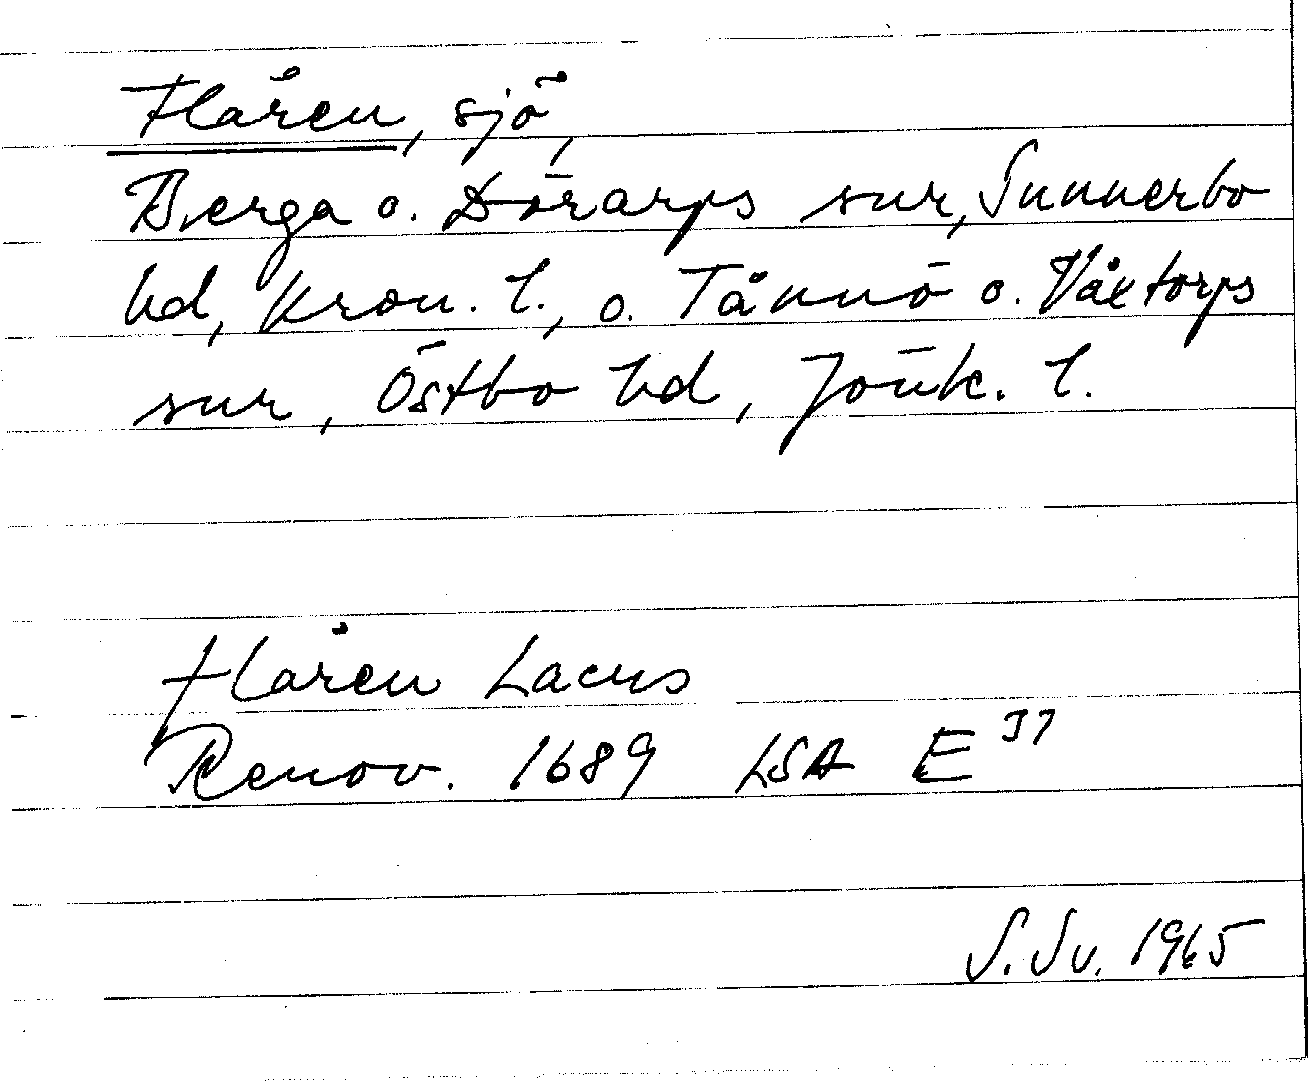 Flåren, sjö,
Berga o. Dörarps snr, Sunnerbo
hd, Kron. l., o. Tånnö o. Våxtorps
snr, Östbo hd, Jönk. l.
Flåren Lacus
Renov. 1689 LSA E 37
S. Sv. 1965